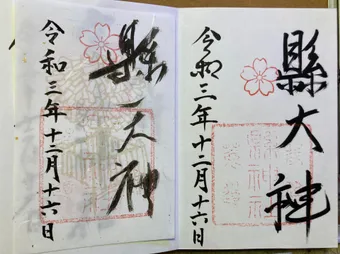 縣大神
令和三年十二月十六日
縣天神
令和三年十二月十六日